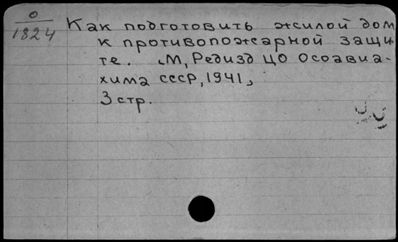 0
1824
Как подготовить жилой дом
к противопожарной защи-
те. М, Редизд ЦО Осоавиа-
хима СССР, 1941,
3 стр.